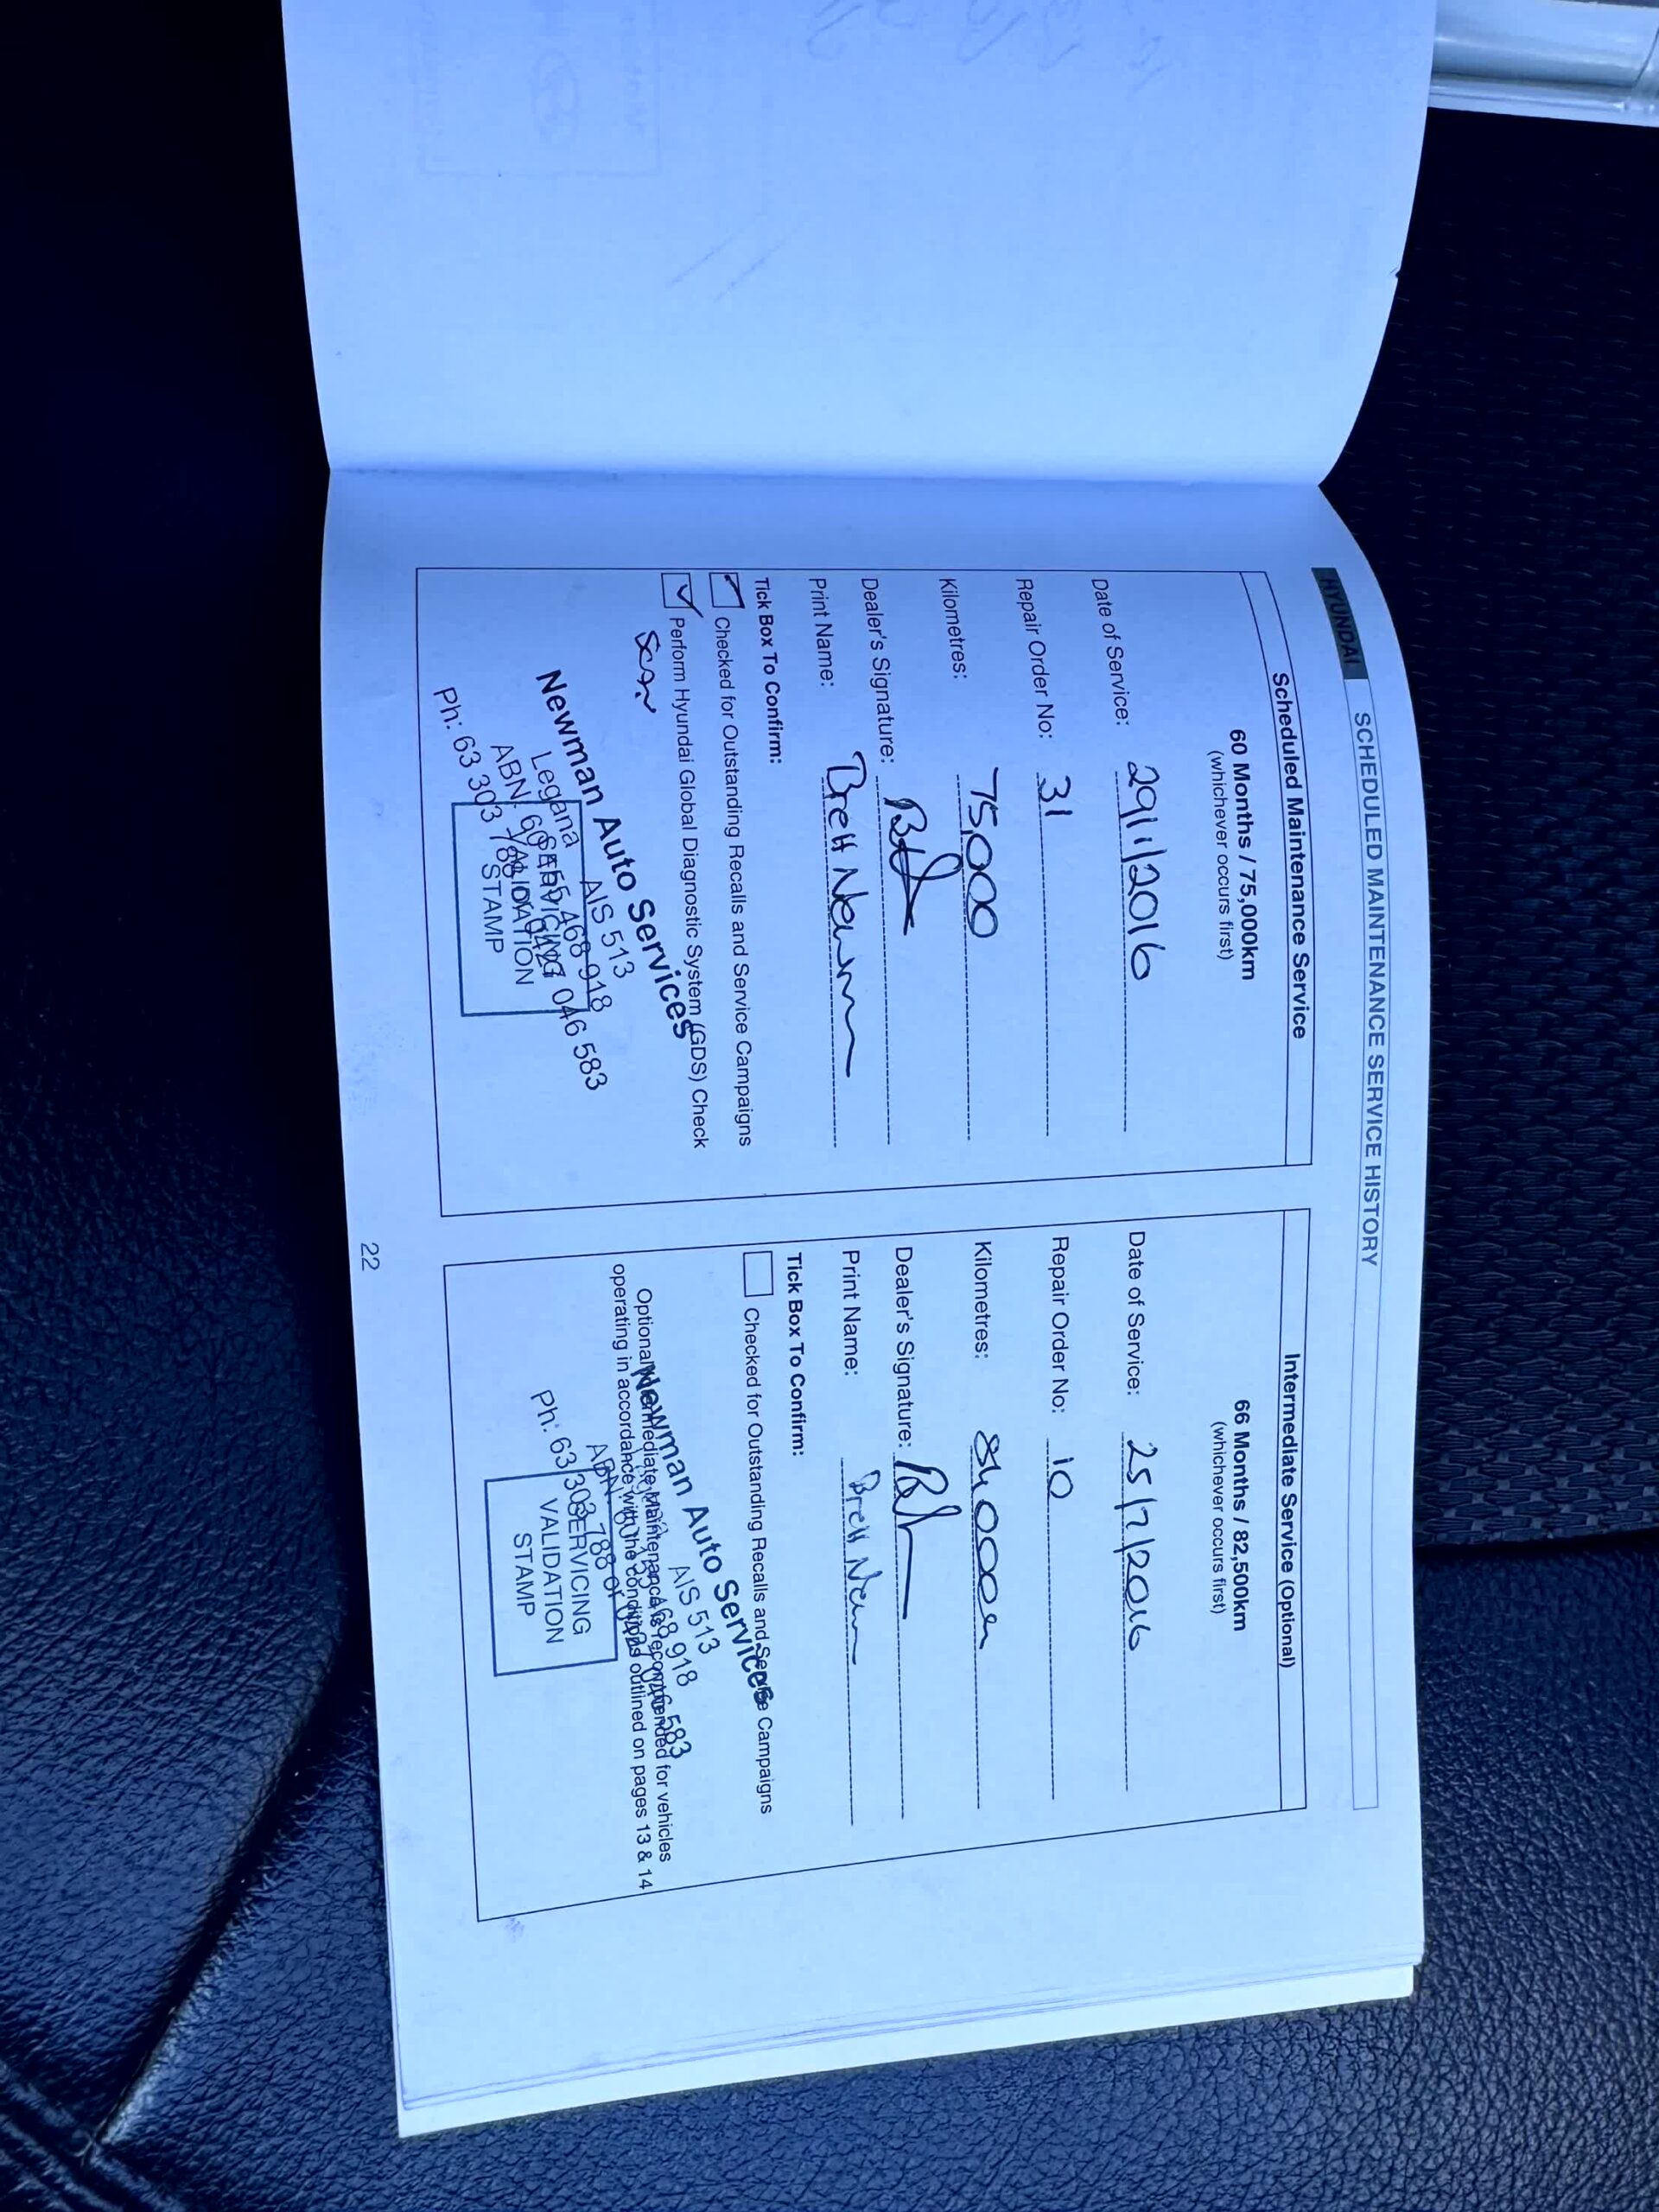 HYUNDAI
SCHEDULED MAINTENANCE SERVICE HISTORY
Scheduled Maintenance Service
60 Months / 75,000km
(whichever occurs first)
Date of Service: 29/1/2016
Repair Order No: 31
Kilometres: 75,000
Dealer's Signature:
Print Name: Brett Newman
Tick Box To Confirm:
Checked for Outstanding Recalls and Service Campaigns
Perform Hyundai Global Diagnostic System (GDS) Check
Scan
Newman Auto Services
AIS 513
Legana
ABN: 60 468 918
Ph: 63 303 788 or 0427 046 583
SERVICING
VALIDATION
STAMP
Intermediate Service (Optional)
66 Months / 82,500km
(whichever occurs first)
Date of Service: 25/7/2016
Repair Order No: 10
Kilometres:
Dealer's Signature:
Print Name: Brett
Tick Box To Confirm:
Checked for Outstanding Recalls and Service Campaigns
Optional Intermediate Maintenance is recommended for vehicles
operating in accordance with the conditions outlined on pages 13 & 14
Newman Auto Services
AIS 513
ABN: 468 918
Ph: 63 303 788 or 583
SERVICING
VALIDATION
STAMP
22